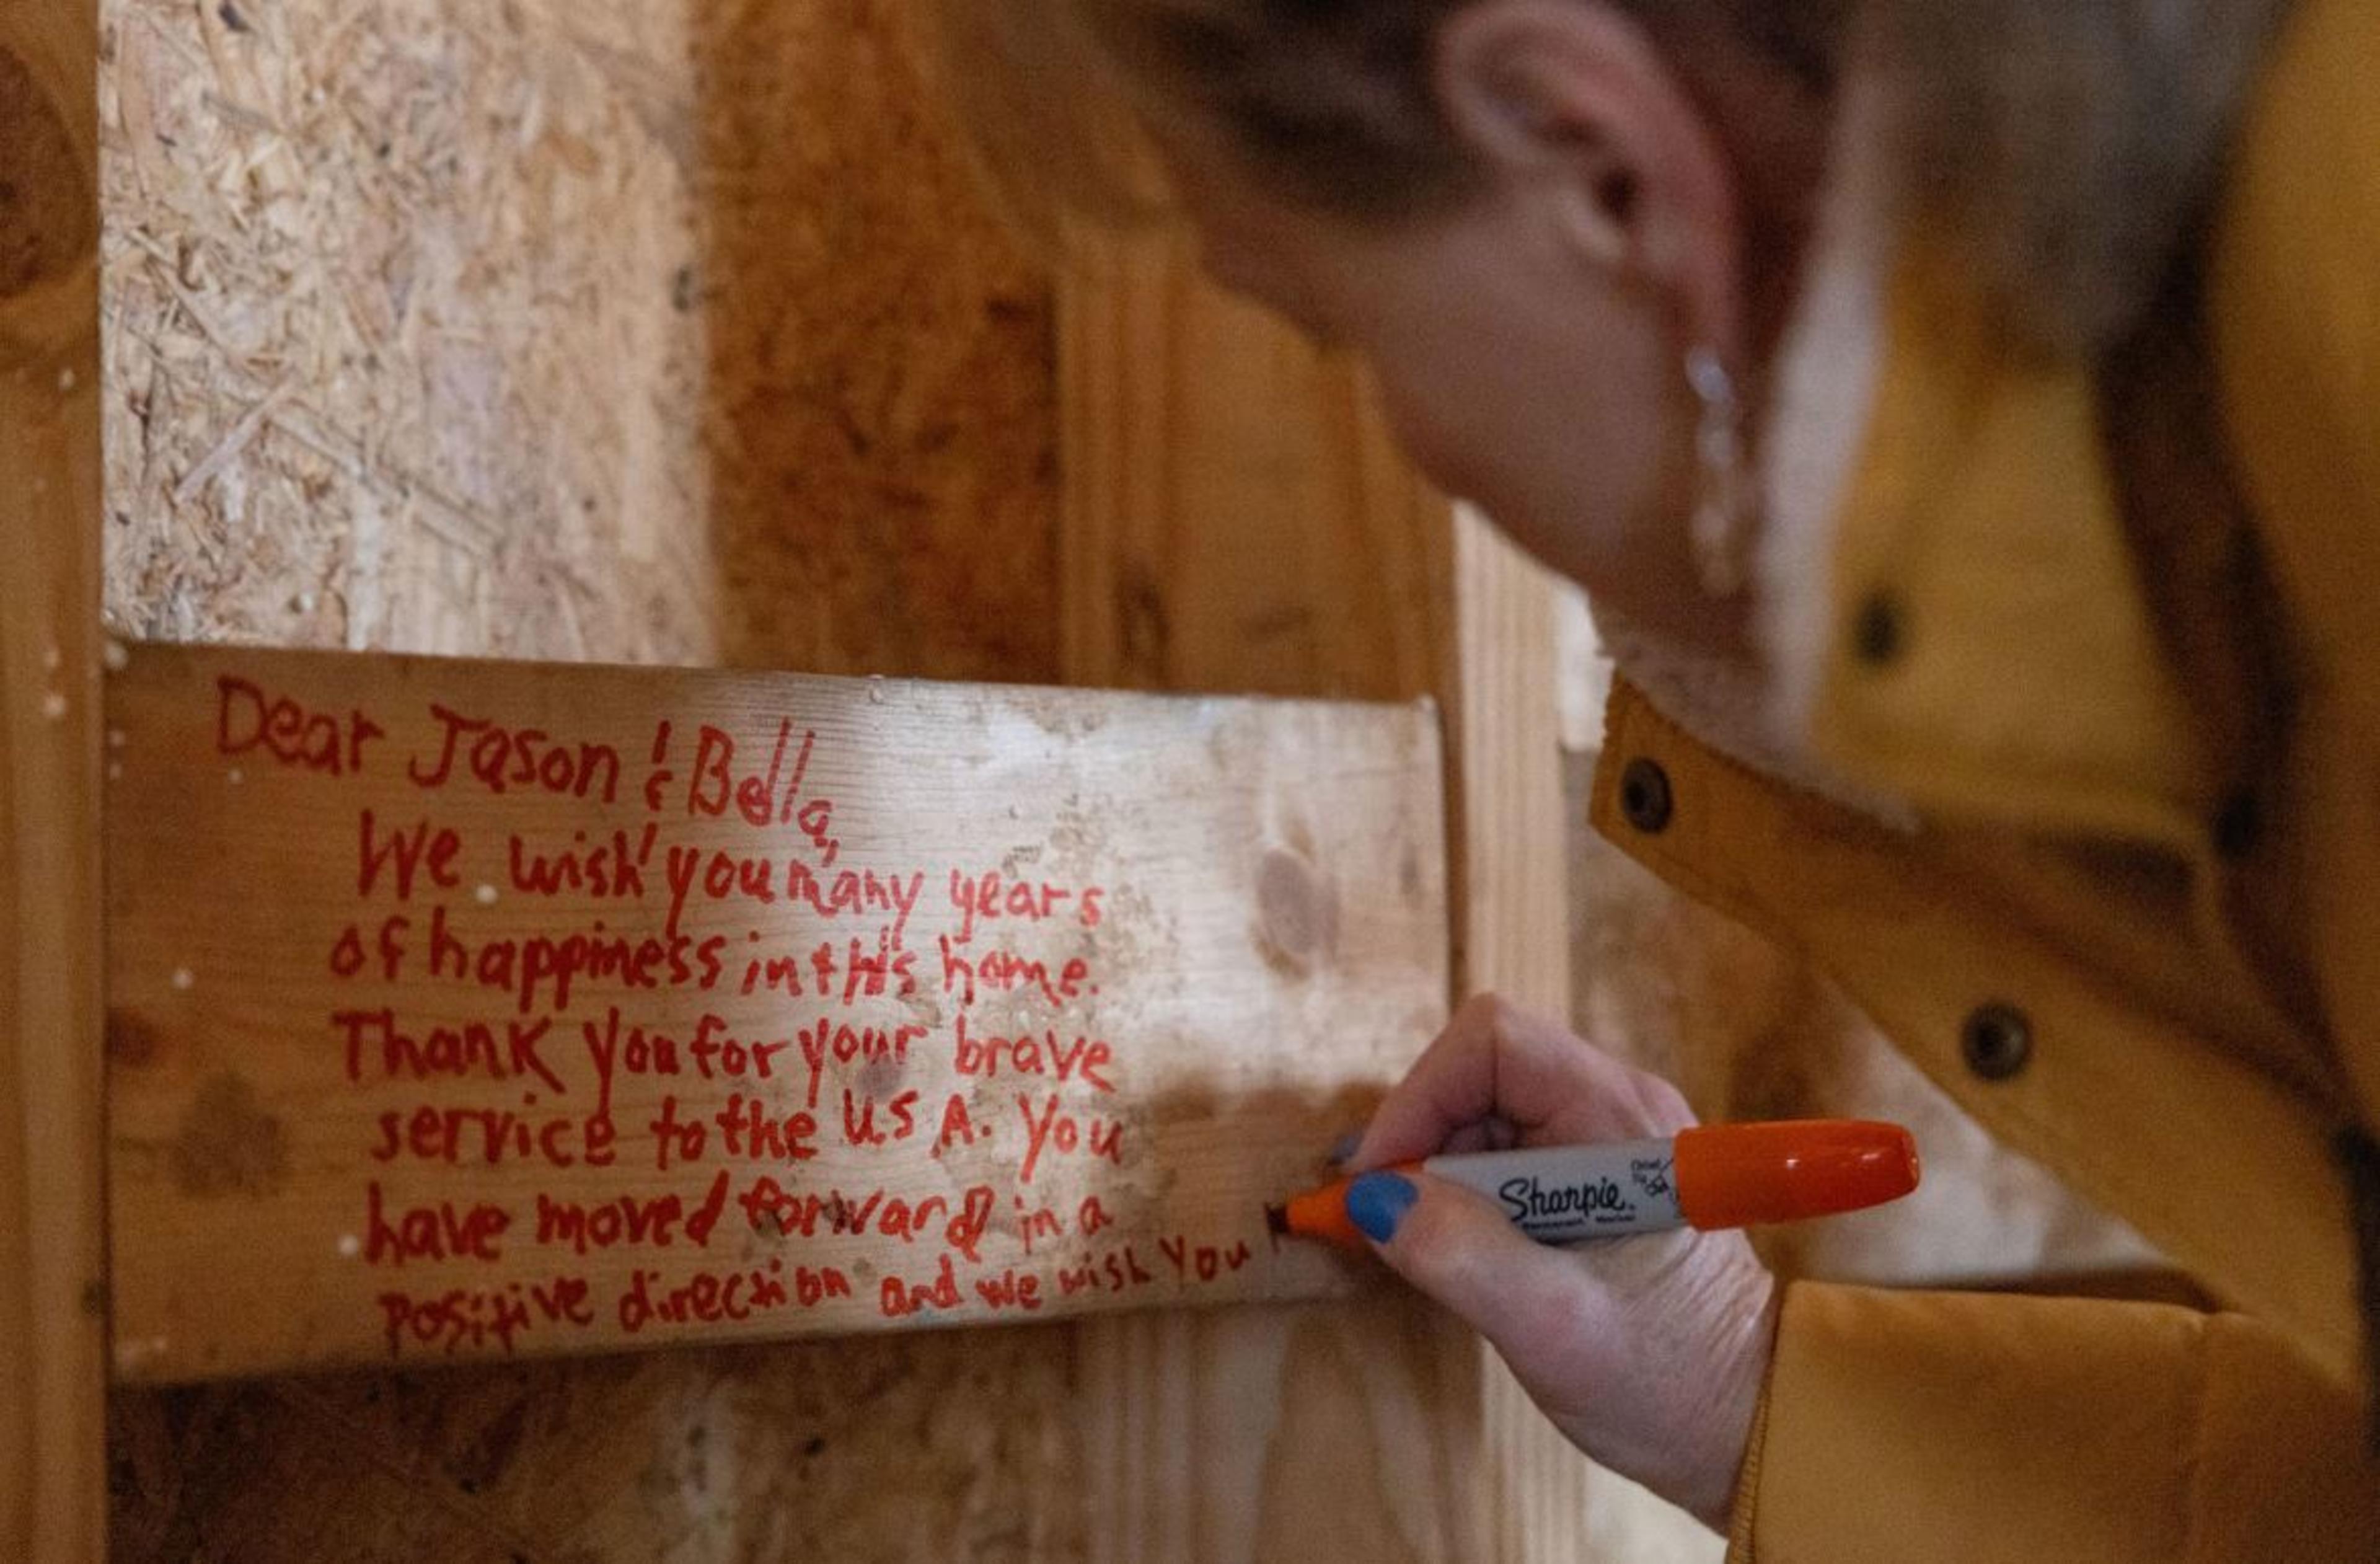 Dear Jason & Bella,
We wish you many years
of happiness in this home.
Thank you for your brave
service to the USA. You
have moved forward in a
positive direction and we wish you
Sharpie.
Permanent Marker